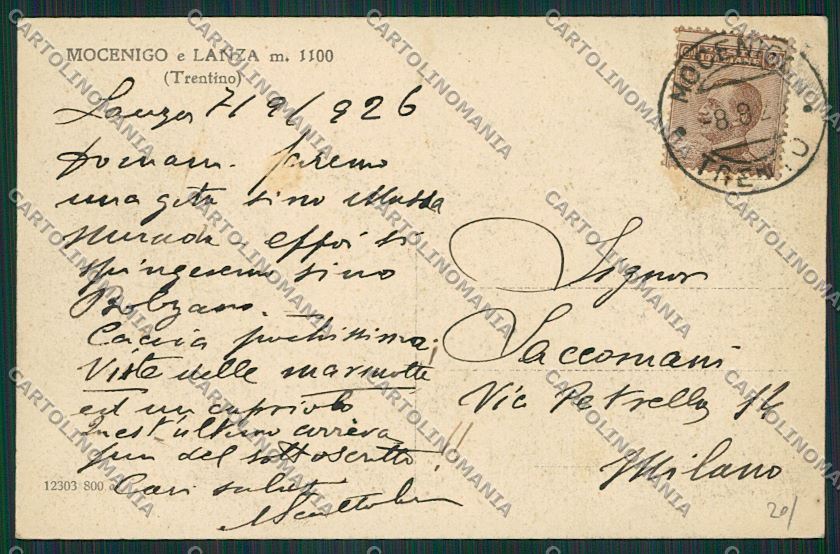 MOCENIGO e LANZA m. 1100
(Trentino)
Lanza 7/9/926
Domani faremo
una gita sino
e poi si
spingeremo sino
Bolzano.
Caccia pochissima!
Viste delle marmotte
ed un capriolo
Quest'ultimo correva
più del sottoscritto!!
Cari saluti
12303 800
MOCENIGO
8.9.2
TRENTO
Signor
Saccomani
Via Petrella 14
Milano
20/
CARTOLINOMANIA